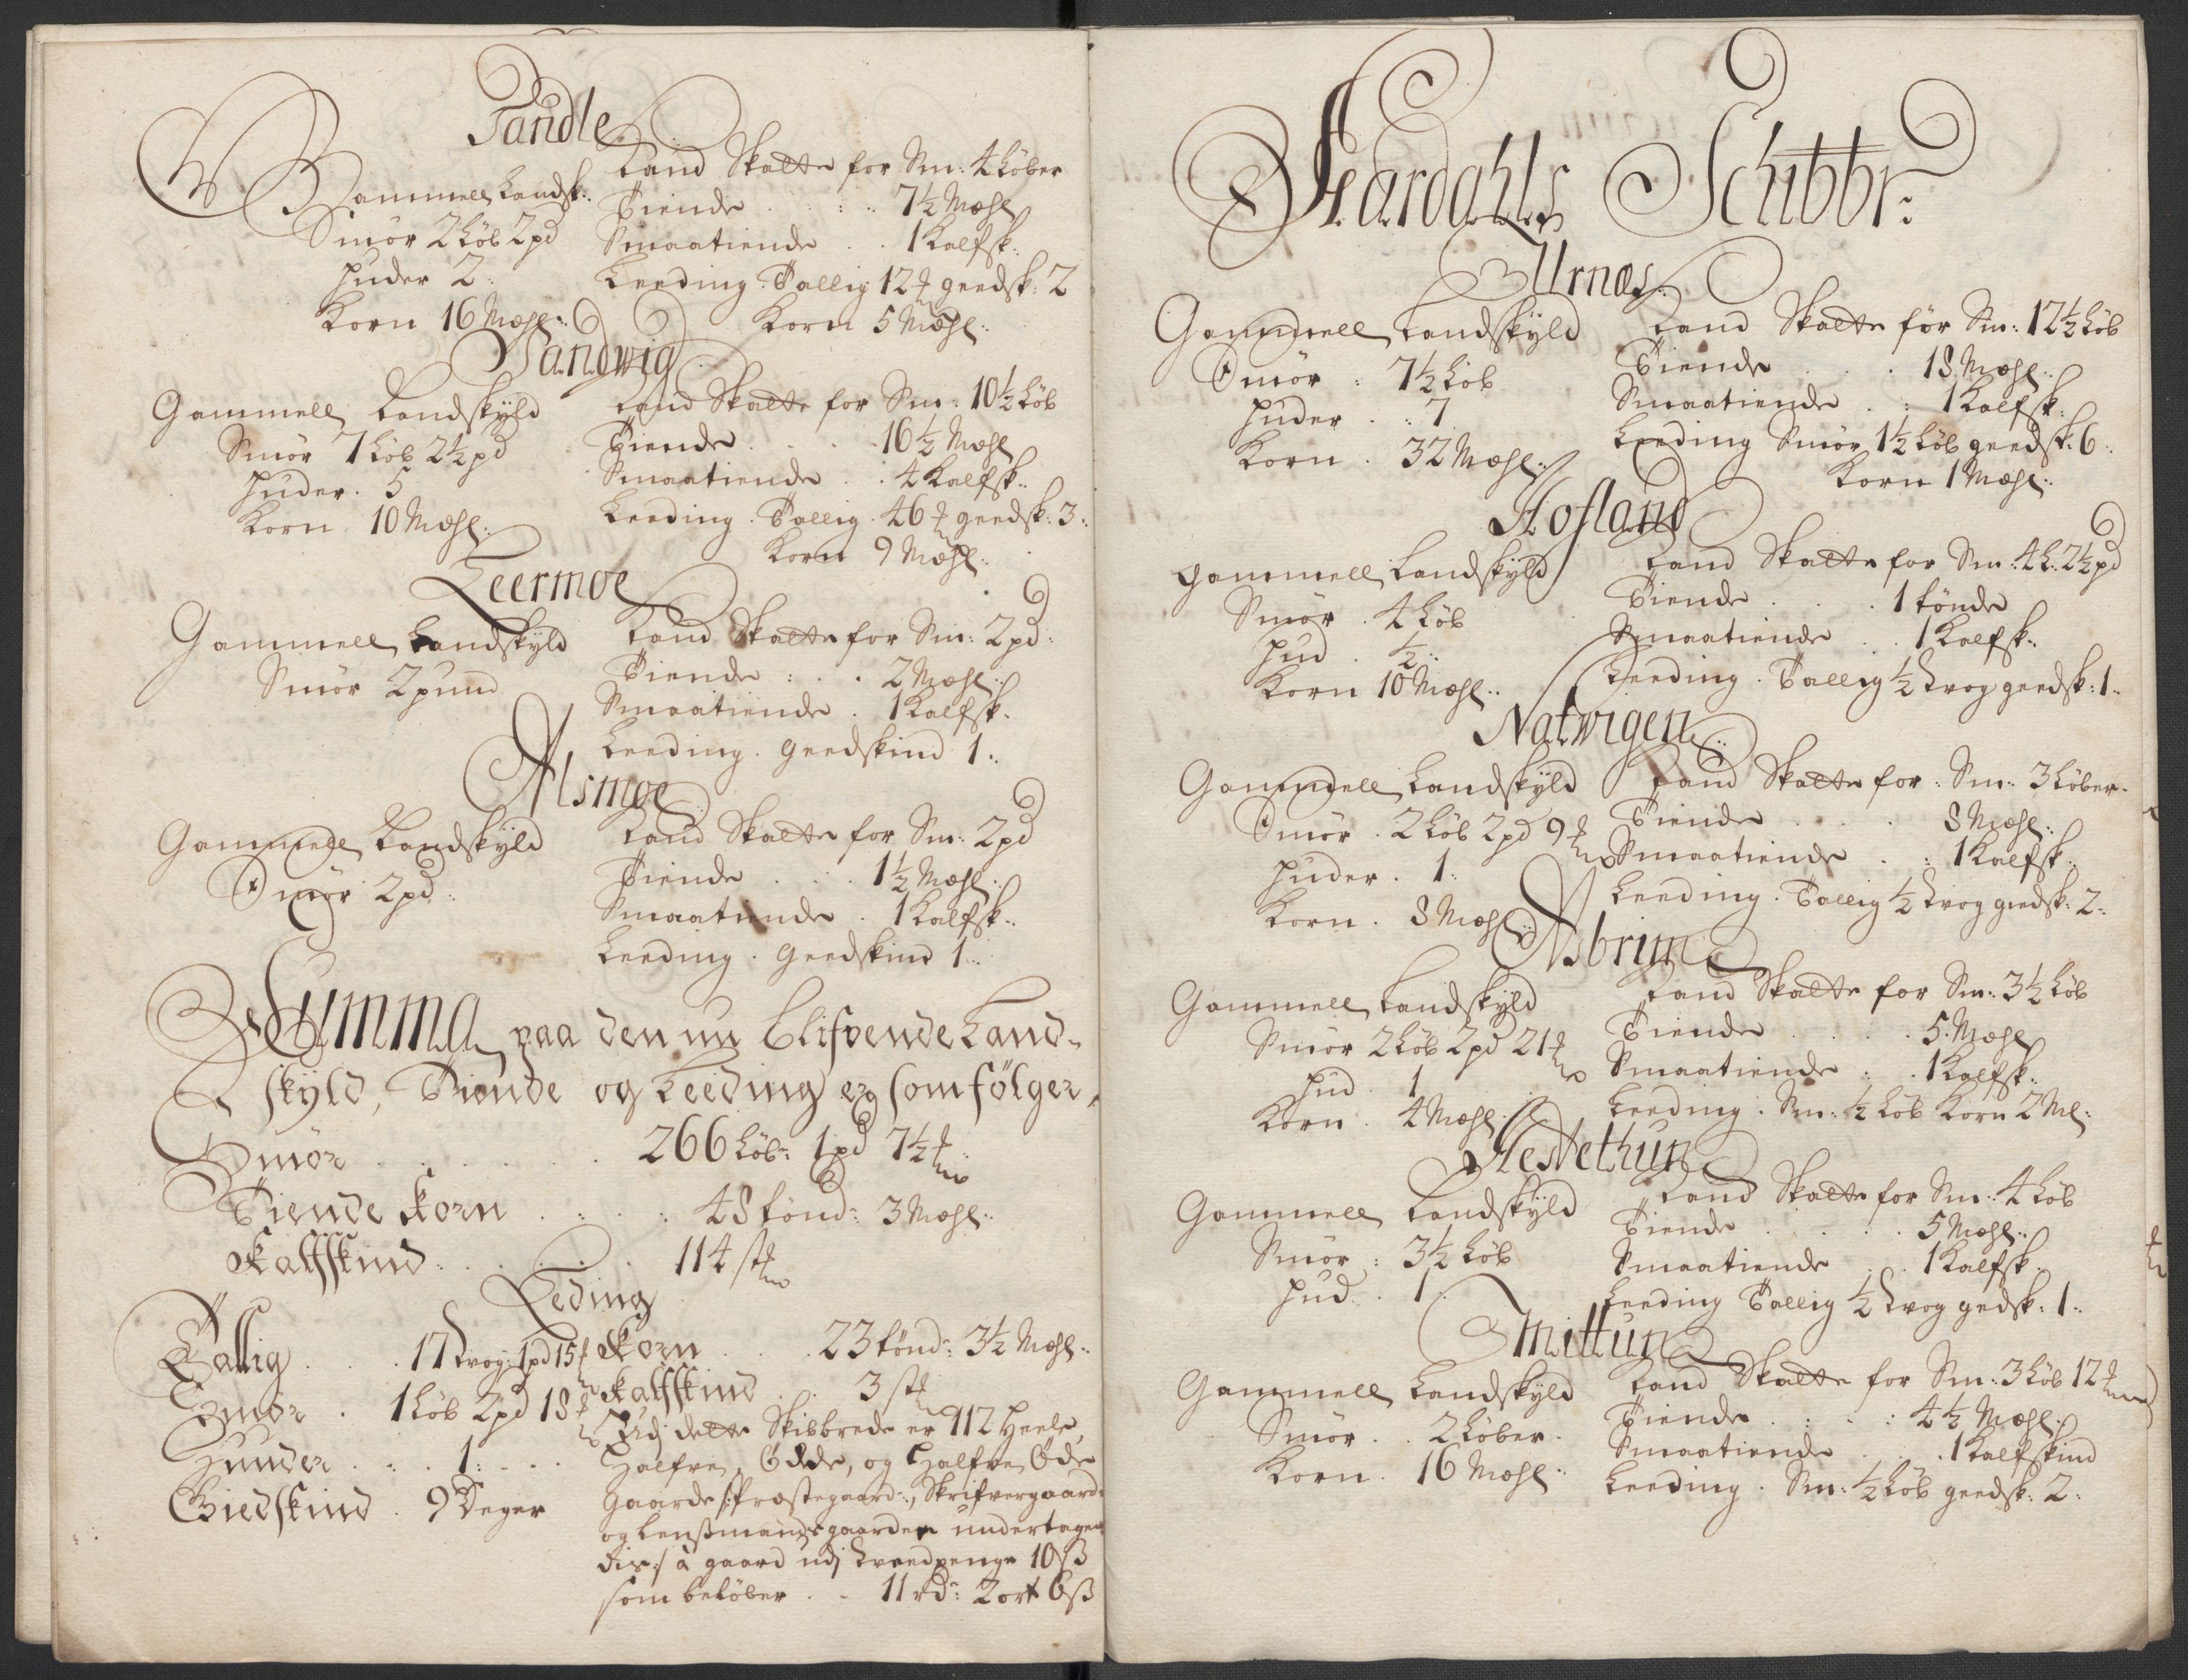 Tandle
Gammell Landsk:
Smör 2 Løb 2 pd
Huder 2
Korn 16 Mæhl:
Land Skatte for Sm: 4 Løber
Tiende . . 7½ Mæhl
Smaatiende . . 1 Kalfsk:
Leeding Tallig 12 ℔ geedsk: 2
Korn 5 Mæhl:
Sandwig
Gammell Landskÿld
Smör 7 Løb 2½ pd
Huder . 5
Korn 10 Mæhl:
Land Skatte for Sm: 10½ Løb
Tiende . . . 16½ Mæhl
Smaatiende . . 4 Kalfsk:
Leeding . Tallig . 46 ℔ geedsk: 3:
Korn 9 Mæhl:
Leermoe
Gammell Landskÿld
Smör 2 pund
Land Skatte for Sm: 2 pd:
Tiende : . . 2 Mæhl:
Smaatiende . 1 Kalfsk.
Leeding . Geedskind 1:
Alsmoe
Gammell Landskÿld
Smör 2 pd:
Land Skatte for Sm: 2 pd
Tiende . . . 1½ Mæhl:
Smaatiende . 1 Kalfsk:
Leeding . Geedskind 1:
Summa paa den nu blifvende Land-
skÿld, Tiende og Leeding er som fölger,
Smör . . . . . 266 Løb: 1 pd 7½ ℔
Tiende Korn . . . . 48 tönd: 3 Mæhl:
Kalfskind . . . . . 114 st
Leding
Tallig . . . 17 Lvog: 1 pd 15 ℔
Smör . 1 Løb 2 pd 18 ℔
Huuder . . . 1: . . .
Giedskind . 9 Deger
Korn . . . 23 tönd: 3½ Mæhl:
Kalfskind . . 3 st
Udj dette Skibbrede er 112 Heele,
Halfve, Ödde, og Halfve Öde
Gaarde /: Præstegaard:, Skrifvergaard:
og Lensmands gaarden undertagen
dis :/ à gaard udj Lveedpenge 10 ß
som beløber . . 11 rd: 2 ort 6 ß
Aardahls Schibbr:
Urnæs
Gammell Landskÿld
Smör : 7½ Løb
Huder . . 7
Korn . 32 Mæhl:
Land Skatte för Sm: 12½ Løb
Tiende . . 18 Mæhl:
Smaatiende . : 1 Kalfsk:
Leeding Smör 1½ Løb geedsk: 6:
Korn 1 Mæhl:
Hofland
Gammell Landskÿld
Smör . 4 Løb
Hud . ½:
Korn 10 Mæhl:
Land Skatte for Sm: 4 L: 2½ pd
Tiende . . . 1 tönde
Smaatiende . . 1 Kalfsk:
Leeding . Tallig ½ Lvog geedsk: 1:
Natwigen
Gammell Landskÿld
Smör . 2 Løb 2 pd 9 ℔
Huder . 1:
Korn . 8 Mæhl:
Land Skatte for : Sm: 3 Løber.
Tiende . . . 8 Mæhl:
Smaatiende . : 1 Kalfsk:
Leeding . Tallig ½ Lvog giedsk: 2:
Asbrim
Gammell Landskÿld
Smör 2 Løb 2 pd 21 ℔
Hud . 1
Korn . 4 Mæhl
Land Skatte for Sm: 3½ Løb
Tiende . . . 5 Mæhl
Smaatiende : . 1 Kalfsk:
Leeding . Sm: ½ Løb Korn 2 Ml:
Hestethun
Gammell Landskÿld
Smör : 3½ Løb
Hud . 1:
Land Skatte for Sm: 4 Løb
Tiende . . . 5 Mæhl:
Smaatiende . . 1 Kalfsk.
Leeding Tallig ½ Lvog gedsk: 1:
Mittun
Gammell Landskÿld
Smör . . 2 Løber.
Korn . 16 Mæhl:
Land Skatte for Sm: 3 Løb 12 ℔
Tiende . : . : 4½ Mæhl:
Smaatiende . . . 1 Kalfskind
Leeding . Sm: ½ Løb geedsk: 2: